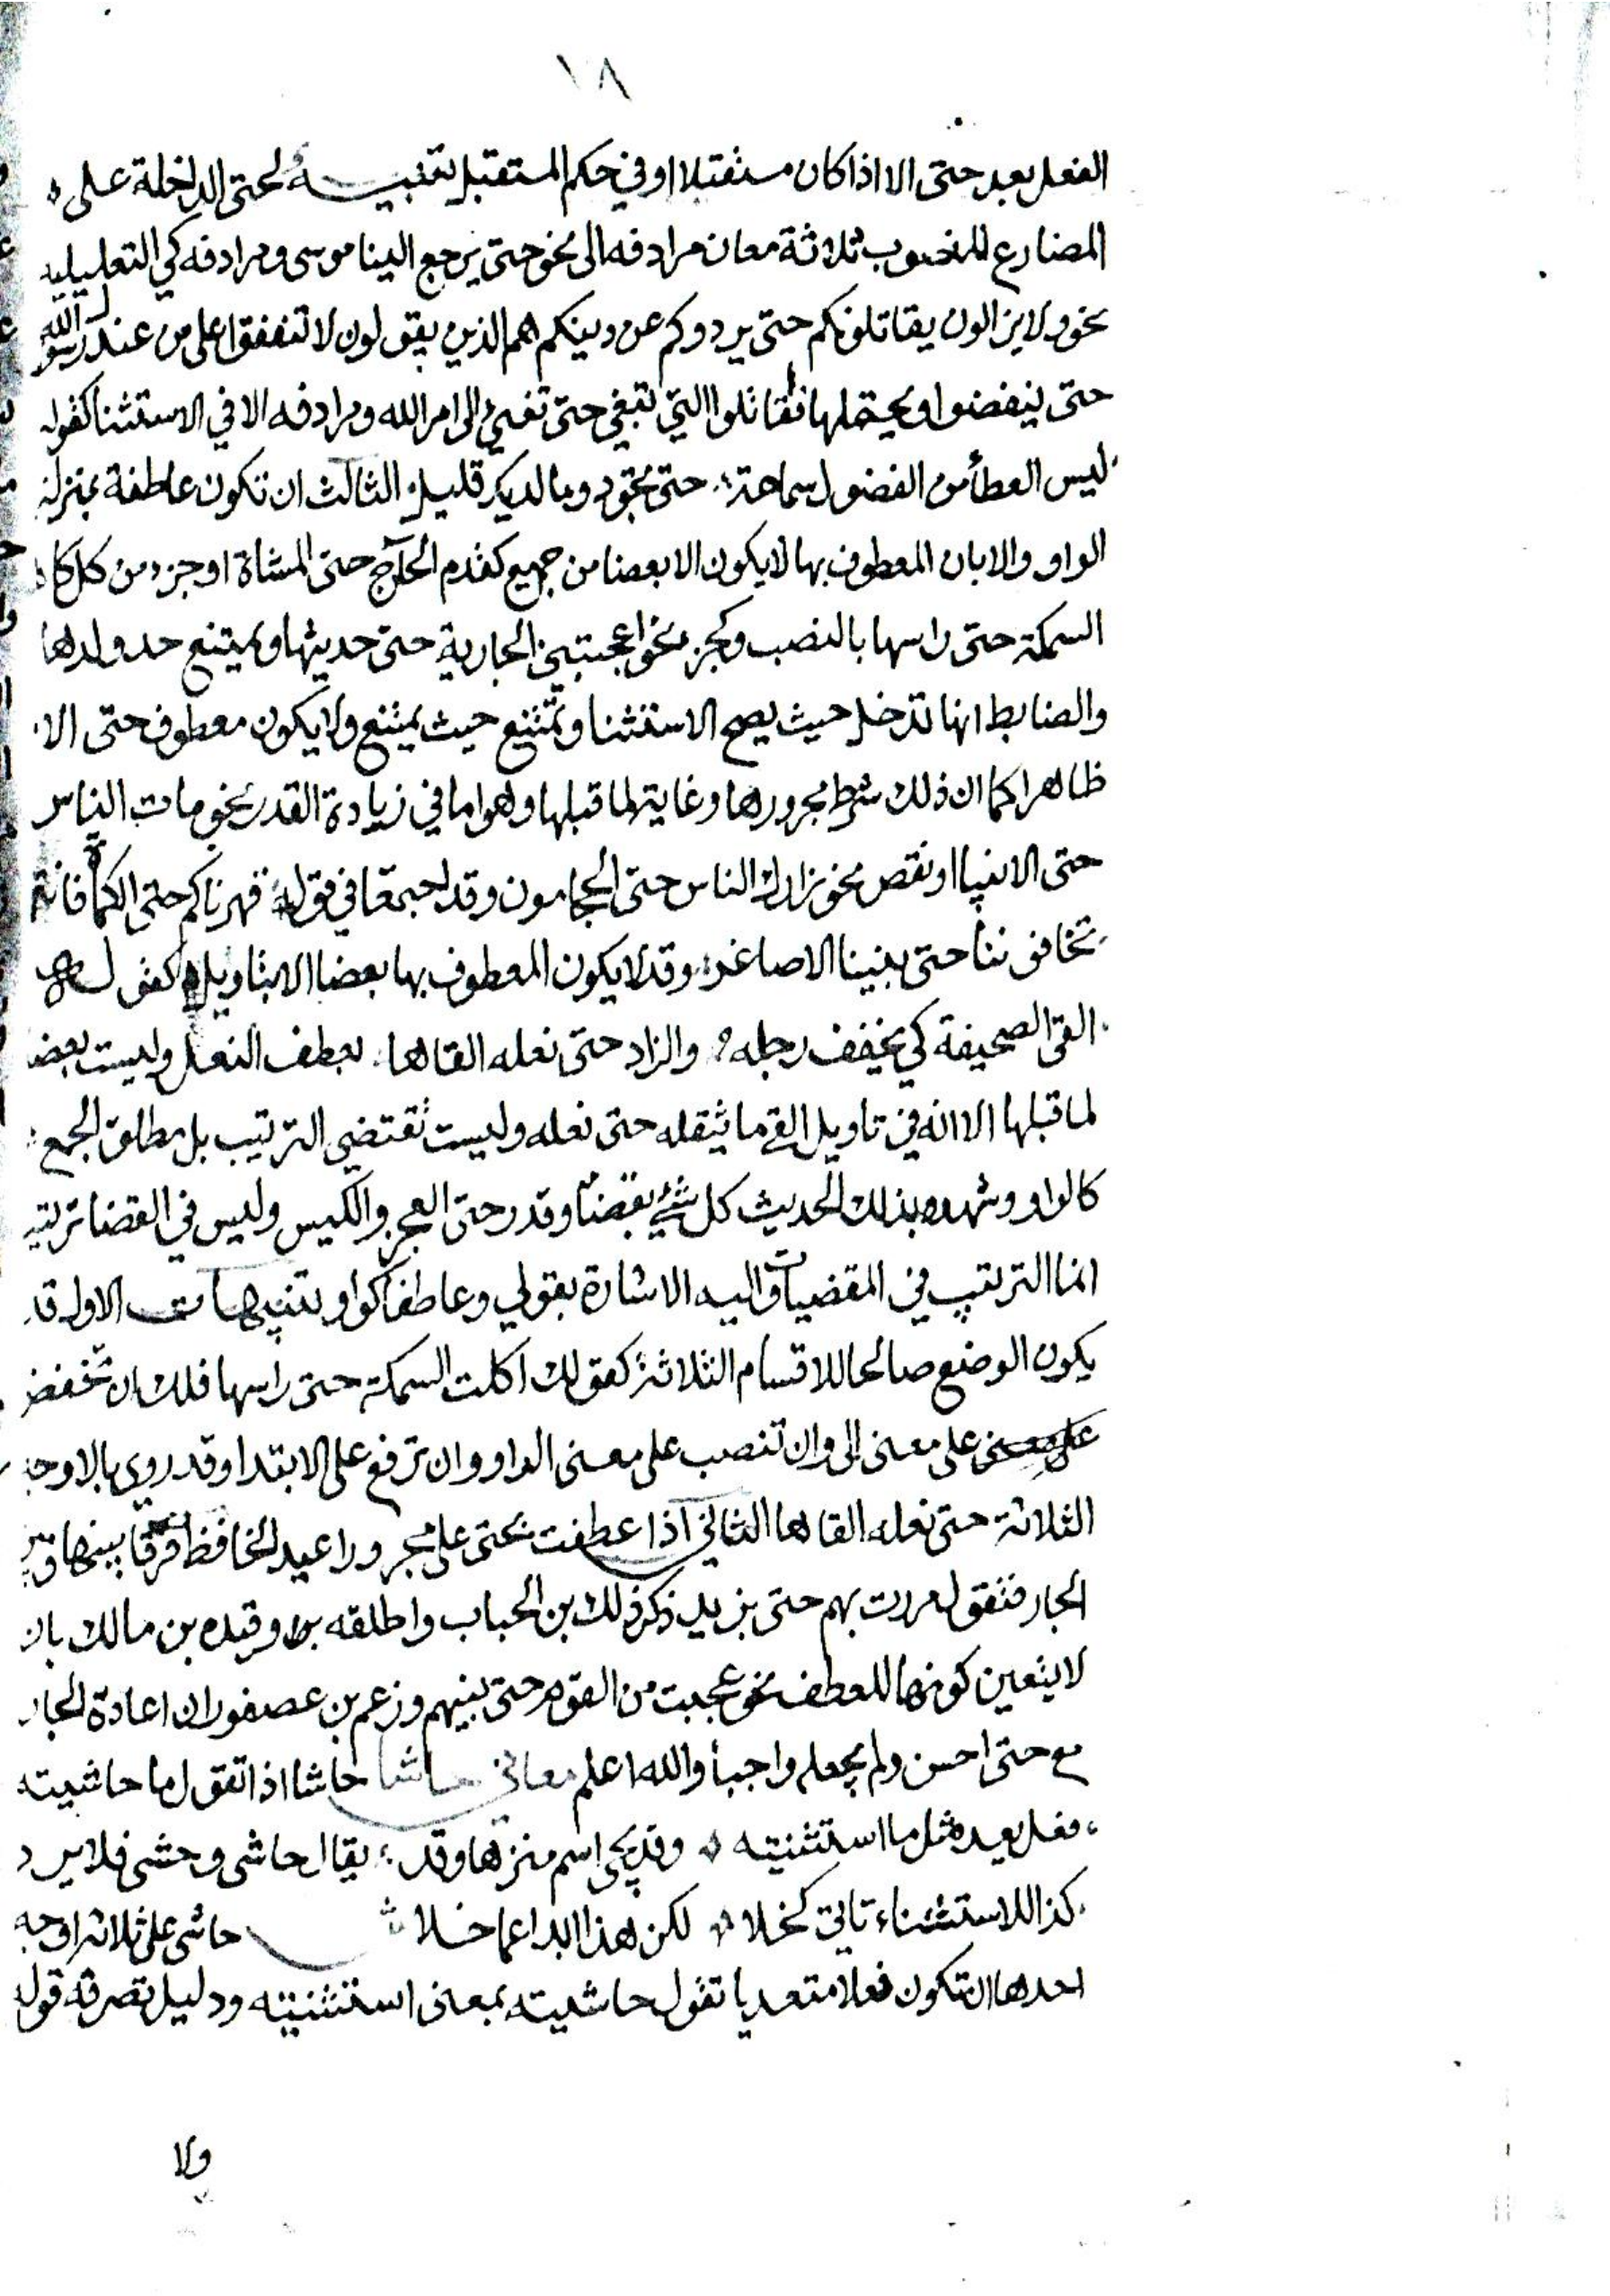 ١٨
الفعل بعد حتى الا اذا كان مستقبلا او في حكم المستقبل تنبيه لحتى الداخلة على
المضارع المنصوب ثلاثة معان مرادفه الى نحو حتى يرجع الينا موسى ومرادفه كي التعليليه
نحو ولا يزالون يقاتلونكم حتى يردوكم عن دينكم هم الذين يقولون لا تنفقوا على من عند رسول الله
حتى ينفضوا ويحتملها فقاتلوا التي تبغي حتى تفيئ الى امر الله ومرادفه الا في الاستثنا كقوله
ليس العطأ من الفضول سماحة حتى تجود وما لديك قليل الثالث ان تكون عاطفة بمنزلة
الواو والا بان المعطوف بها لا يكون الا بعضا من جميع كقدم الحآج حتى المشاة او جزء من كل كا
السمكة حتى راسها بالنصب وكجزء نحو اعجبتني الجارية حتى حديثها ويمتنع حد ولدها
والضابط انها تدخل حيث يصح الاستثنا وتمتنع حيث يمتنع ولا يكون معطوف حتى الا
ظاهرا كما ان ذلك شرط مجرورها وغاية لما قبلها وهو اما في زيادة القدر نحو مات الناس
حتى الانبيا او نقص نحو زارك الناس حتى الحجامون وقد اجتمعا في قوله قهرناكم حتى الكماة فانتم
تخافوننا حتى بنينا الاصاغر وقد لا يكون المعطوف بها بعضا الا بتاويل كقوله
القى الصحيفة كي يخفف رحله والزاد حتى نعله القاها بعطف النعل وليست بعض
لما قبلها الا انه في تاويل القى ما يثقله حتى نعله وليست تقتضي الترتيب بل مطلق الجمع
كالواو وشهد بذلك الحديث كل شئ بقضا وقدر حتى العجز والكيس وليس في القضا ترتيب
انما الترتيب في المقضيات واليه الاشارة بقولي وعاطفا كواو تنبيهات الاول قد
يكون الوضع صالحا للاقسام الثلاثة كقولك اكلت السمكة حتى راسها فلك ان تخفض
على معنى على معنى الى وان تنصب على معنى الواو وان ترفع على الابتدا وقد روي بالاوجه
الثلاثة حتى نعله القاها الثاني اذا عطفت بحتى على مجرور اعيد الخافظ فرقا بينها وبين
الجار فتقول مررت بهم حتى بزيد ذكر ذلك بن الخباب واطلقه وقيده بن مالك بان
لا يتعين كونها للعطف نحو عجبت من القوم حتى بنيهم وزعم بن عصفور ان اعادة الجار
مع حتى احسن ولم يجعله واجبا والله اعلم معاني حاشا حاشا اذا تقول ما حاشيته
فعل بعيده مثل ما استثنيته وقد يجى اسم منزها وقد يقال حاشى وحشى فلا يرد
كذا للاستثناء تاتي كخلا لكن هذا ابدا عما خلا ش حاشى على ثلاثة اوجه
احدها ان تكون فعلا متعديا تقول حاشيته بمعنى استثنيته ودليل تصرفه قوله
ولا